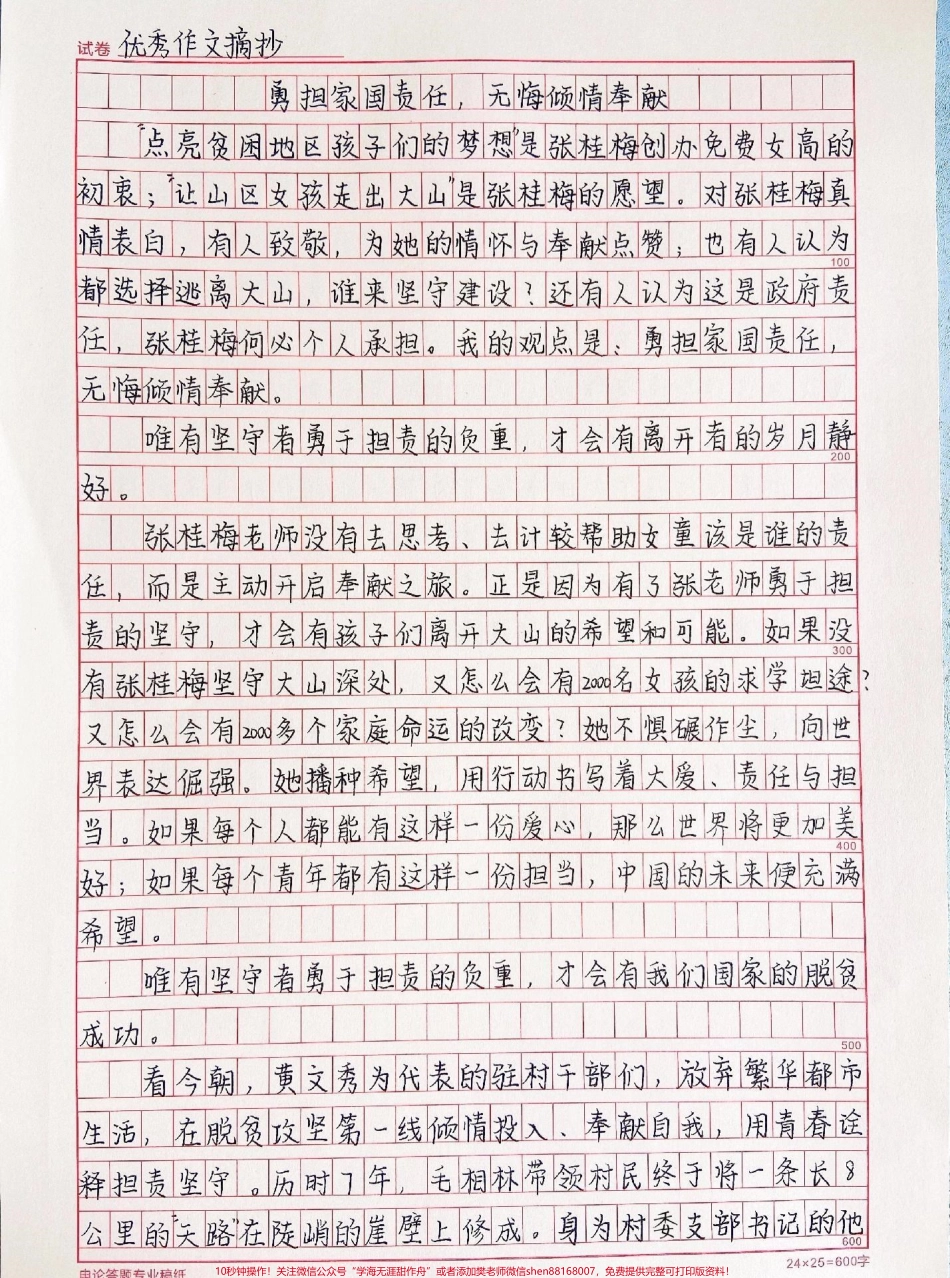 试卷 优秀作文摘抄
勇担家国责任，无悔倾情奉献
“点亮贫困地区孩子们的梦想”是张桂梅创办免费女高的
初衷；“让山区女孩走出大山”是张桂梅的愿望。对张桂梅真
情表白，有人致敬，为她的情怀与奉献点赞；也有人认为
100
都选择逃离大山，谁来坚守建设？还有人认为这是政府责
任，张桂梅何必个人承担。我的观点是：勇担家国责任，
无悔倾情奉献。
唯有坚守者勇于担责的负重，才会有离开者的岁月静
200
好。
张桂梅老师没有去思考、去计较帮助女童该是谁的责
任，而是主动开启奉献之旅。正是因为有了张老师勇于担
责的坚守，才会有孩子们离开大山的希望和可能。如果没
300
有张桂梅坚守大山深处，又怎么会有2000名女孩的求学坦途？
又怎么会有2000多个家庭命运的改变？她不惧碾作尘，向世
界表达倔强。她播种希望，用行动书写着大爱、责任与担
当。如果每个人都能有这样一份爱心，那么世界将更加美
400
好；如果每个青年都有这样一份担当，中国的未来便充满
希望。
唯有坚守者勇于担责的负重，才会有我们国家的脱贫
成功。
500
看今朝，黄文秀为代表的驻村干部们，放弃繁华都市
生活，在脱贫攻坚第一线倾情投入、奉献自我，用青春诠
释担责坚守。历时7年，毛相林带领村民终于将一条长8
公里的“天路”在陡峭的崖壁上修成。身为村委支部书记的他
600
申论答题专业稿纸
24×25=600字
10秒钟操作！关注微信公众号“学海无涯甜作舟”或者添加樊老师微信shen88168007，免费提供完整可打印版资料！